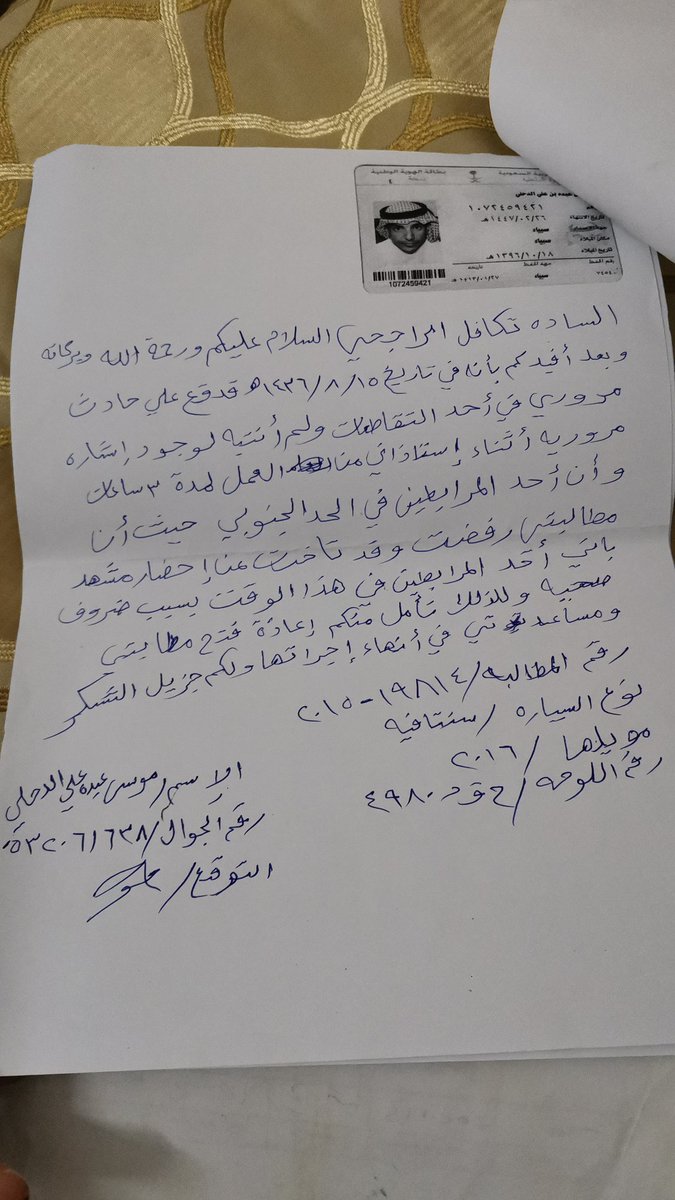 بطاقة الهوية الوطنية
عبده بن علي الدحلي
١٠٧٢٤٥٩٤٢١
تاريخ الانتهاء ١٤٤٧/٠٢/٢٦هـ
صبياء
مكان الميلاد صبياء
تاريخ الميلاد ١٣٩٦/١٠/١٨هـ
رقم الحفظ جهة الحفظ تاريخه
صبياء
1072459421
الساده تكافل الراجحي السلام عليكم ورحمة الله وبركاته
وبعد أفيدكم بأنه في تاريخ ١٤٣٦/٨/١٥هـ قد وقع علي حادث
مروري في أحد التقاطعات ولم أنتبه لوجود إشاره
مروريه أثناء إستاذاني من العمل لمدة ٣ ساعات
وأن أحد المرابطين في الحد الجنوبي حيث أن
مطالبتي رفضت وقد تاخرت من إحضار مشهد
باني أحد المرابطين في هذا الوقت بسبب ضروف
صحيه وللذلك نأمل منكم إعادة فتح مطالبتي
ومساعدتي في أنهاء إجراتها ولكم جزيل الشكر
رقم المطالبه/١٩٨١٤-٢٠١٥
نوع السياره/سنتافيه
موديلها/٢٠١٦
رقم اللوحه/ح ق د ٤٩٨٠
الإسم/موسى عبده علي الدحلي
رقم الجوال/٠٥٣٢٠٦١٦٣٨
التوقيع/